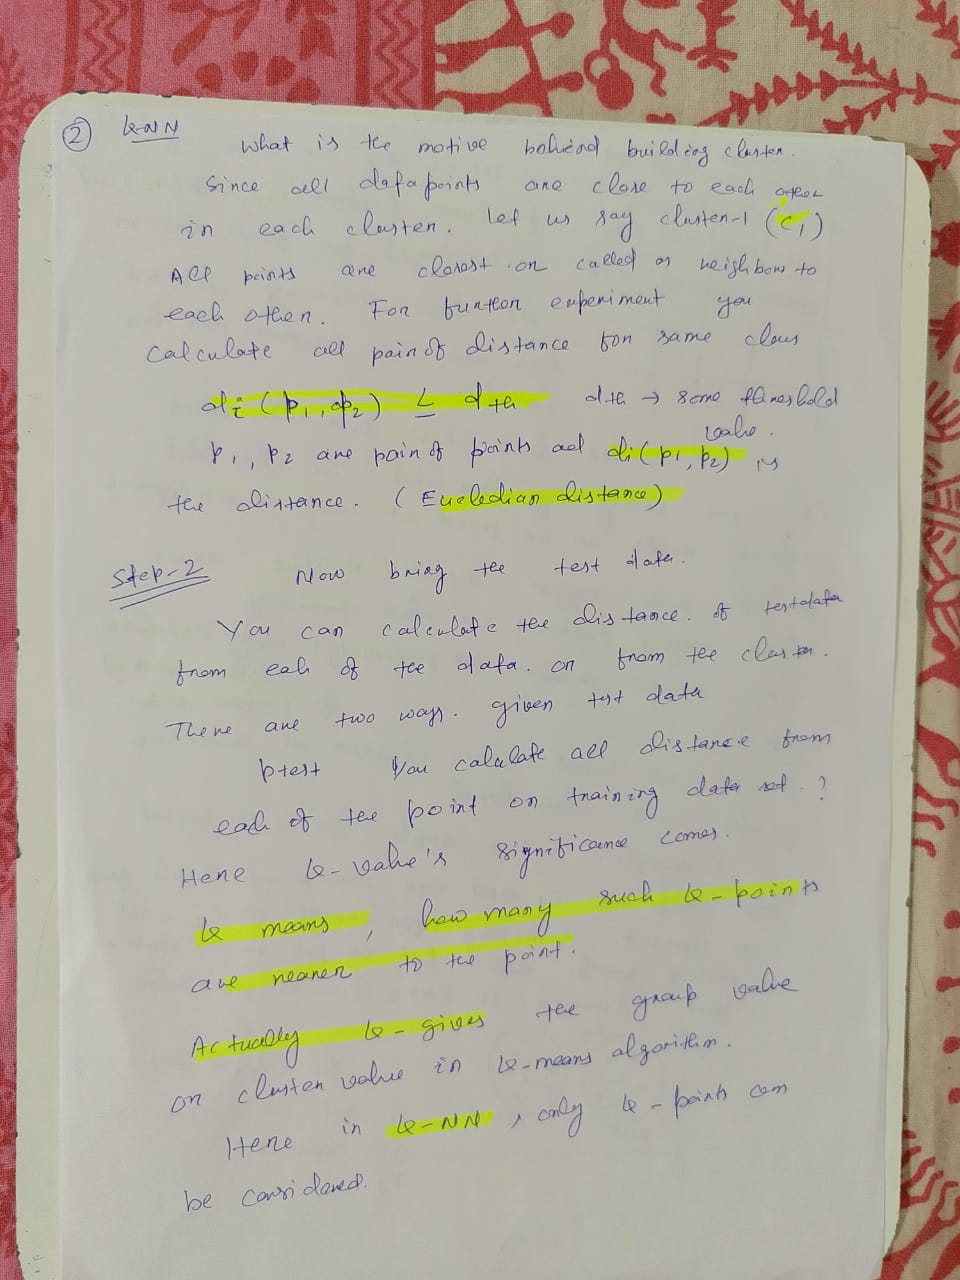 ② k-NN
What is the motive behind building cluster.
Since all datapoints are close to each other
in each cluster. Let us say cluster-1 (c₁)
All points are closest or called as neighbors to
each other. For further experiment you
Calculate all pair of distance for same class
di (p₁, p₂) ≤ dth dth → some threshold
value.
p₁, p₂ are pair of points and di(p₁, p₂) is
the distance. (Eucledian distance)
Step-2 Now bring the test data.
You can calculate the distance. of testdata
from eah of the data. or from the cluster.
There are two ways. given test data
ptest You calulate all distance from
each of the point on training data set. ?
Here k-value's significance comes.
k means, how many such k-points
are nearer to the point.
Actually k-gives the group value
or cluster value in k-means algorithm.
Here in k-NN, only k-points can
be considered.